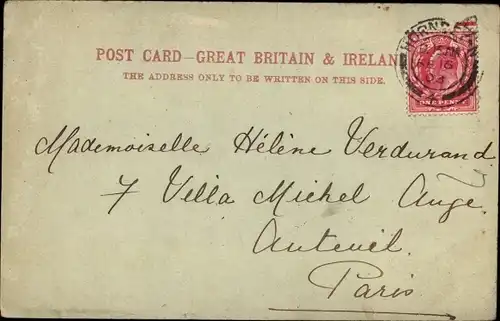 POST CARD—GREAT BRITAIN & IRELAND
THE ADDRESS ONLY TO BE WRITTEN ON THIS SIDE.
16
04
ONE PENNY
Mademoiselle Hélène Verdurand.
7 Villa Michel Ange.
Auteuil.
Paris